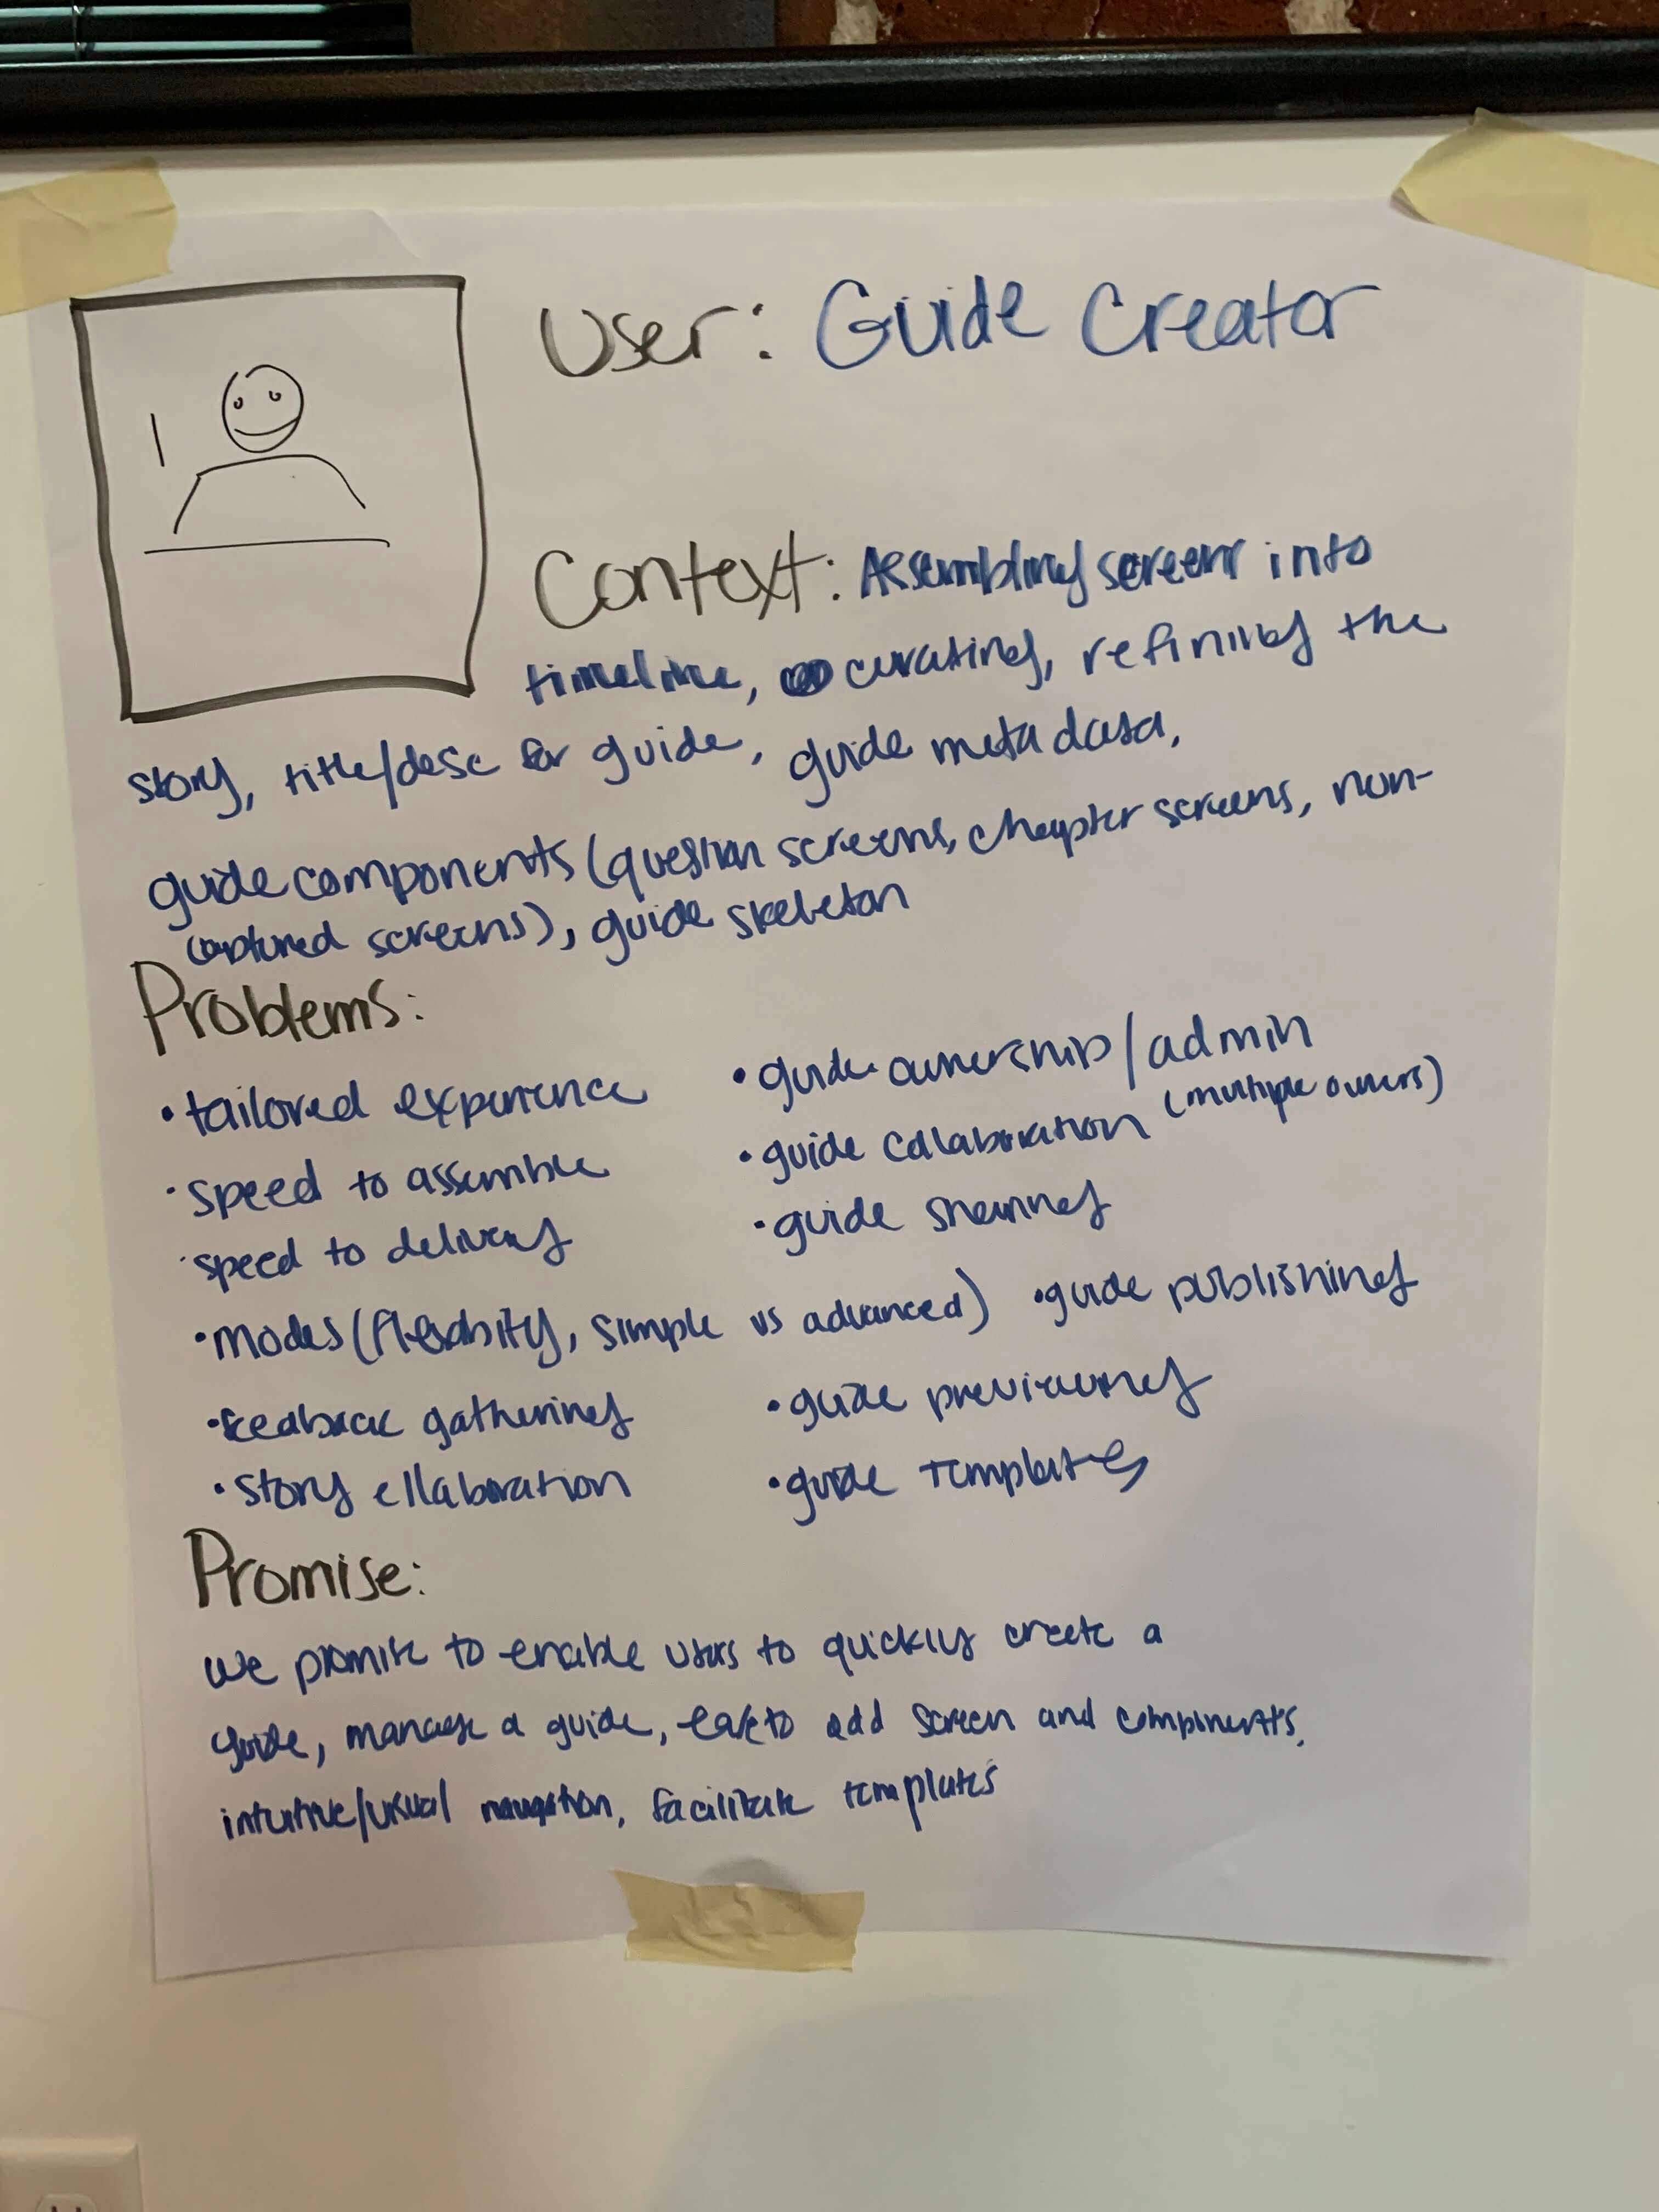 User: Guide Creator
Context: Assembling screens into
timeline, curating, refining the
story, title/desc for guide, guide metadata,
guide components (question screens, chapter screens, non-
captured screens), guide skeleton
Problems:
• tailored experience
• speed to assemble
• speed to delivery
• modes (flexibility, simple vs advanced)
• feedback gathering
• story ellaboration
• guide ownership/admin
(multiple owners)
• guide collaboration
• guide sharing
• guide publishing
• guide previewing
• guide templates
Promise:
We promise to enable users to quickly create a
guide, manage a guide, to add screen and components,
intuitive/visual navigation, facilitate templates